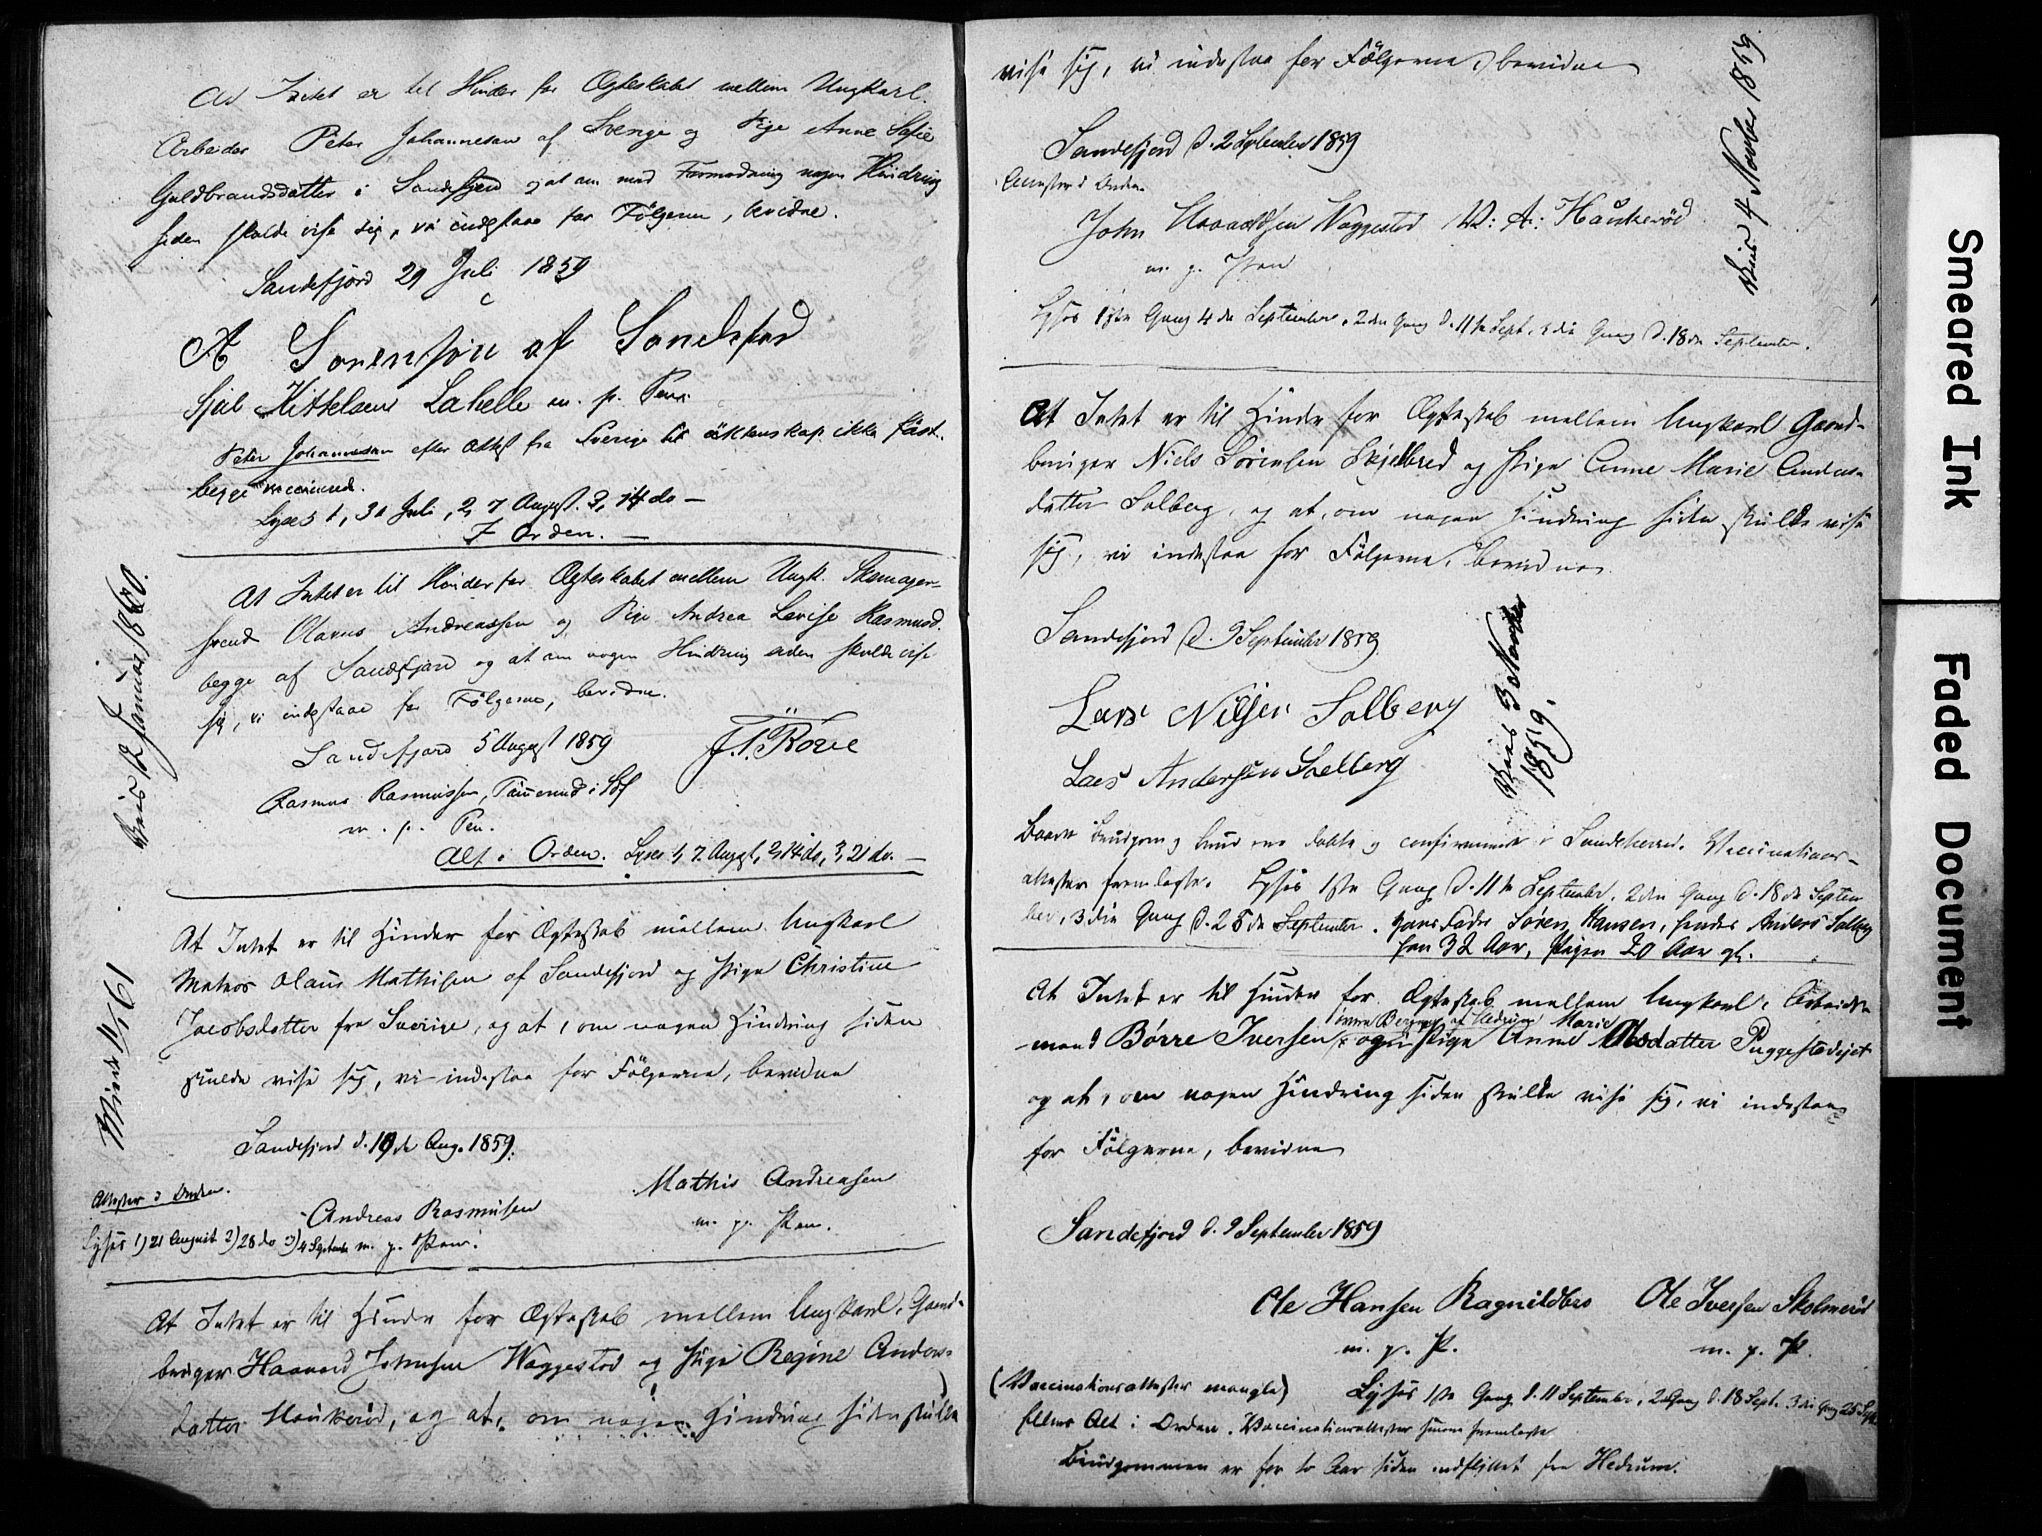 At Intet er til Hinder for Ægteskabet mellem Ungkarl.
Arbeider Peter Johannesen af Sverige og Pige Anne Sofie
Guldbrandsdatter i Sandefjord og at om mod Formodning nogen Hindring
siden skulde vise sig, vi indestaae for Følgerne, bevidne.
Sandefjord 29 Juli 1859
A Sorensøn af Sandefjord
Kittelsen Lahelle m. p. Pen
Peter Johannesen efter Attest fra Sverige til äktenskap ikke fäst.
begge vaccinered.
Lyses 1, 31 Juli, 2, 7 August. 3, 14 do —
I Orden. —
At Intet er til Hinder for Ægteskabet mellem Ungk. Skomager-
svend Olavus Andreassen og Pige Andrea Lovise Rasmusd.
begge af Sandefjord og at om nogen Hindring siden skulde vise
sig, vi indestaae for Følgerne, bevidne.
Sandefjord 5 August 1859
Rasmus Rasmussen, Tømmermd i
m. p. Pen.
Alt i Orden. Lyses 1, 7. Augst, 2, 14 do, 3, 21 do. —
Viede 12 Januar 1860.
At Intet er til Hinder for Ægteskab mellem Ungkarl
Matros Olaus Mathisen af Sandefjord og Pige Christine
Jacobsdatter fra Sverige, og at, om nogen Hindring siden
skulde vise sig, vi indestaa for Følgerne, bevidne
Sandefjord d. 19de Aug. 1859.
Attester i Orden.
Andreas Rasmusen
Mathis Andreasen
m. p. Pen.
Lyses 1) 21 August 2) 28 do 3) 4 Septembr m. p. Pen.
At Intet er til Hinder for Ægteskab mellem Ungkarl, Gaard-
bruger Haavard Johnsen Waggestod og Pige Regine Anders-
datter Haukerød, og at, om nogen Hindring siden skulde
vise sig, vi indestaa for Følgerne, bevidne
Sandefjord d. 2 September 1859
Attester i Orden
John Haavardsen Waggestod A: Haukerød
m. p. Pen
Viede 4 November 1859.
Lyses 1ste Gang 4de September, 2den Gang d. 11te Sept. 3die Gang d. 18de September.
At Intet er til Hinder for Ægteskab mellem Ungkarl Gaard-
bruger Niels Sørensen Skjelbred og Pige Anne Marie Anders-
datter Solberg, og at, om nogen Hindring siden skulde vise
sig, vi indestaa for Følgerne, bevidne
Sandefjord d. 9 September 1859.
Lars Nilsen Solberg
Lars Andersen Solberg
Viede 3 November
1859.
Baade Brudgom og Brud ere døbte og confirmerede i Sandeherred. Vaccinations-
attester fremlagte. Lyses 1ste Gang d. 11te September, 2den Gang d. 18de Septem
ber, 3die Gang d. 25de September. Hans Fader Søren Hansen, hendes Anders Solberg
han 32 Aar, Pigen 20 Aar gl.
At Intet er til Hinder for Ægteskab mellem Ungkarl, Arbeids-
mand Børre Iversen og Pige Anne Marie Olsdatter Puggestadejet
og at, om nogen Hindring siden skulde vise sig, vi indestaa
for Følgerne, bevidne
Sandefjord d. 9 September 1859
Ole Hansen Ragnildbro Ole Iversen Skolmerød
m. p. P. m. p. P.
(Vaccinationsattester mangle) Lyses 1ste Gang d. 11 September, 2 Gang d. 18 Sept. 3die Gang 25 Sept
ellers Alt i Orden. Vaccinationsattester senere fremlagte.
Brudgommen er for to Aar siden indflyttet fra Hedrum.
Smeared Ink
Faded Document